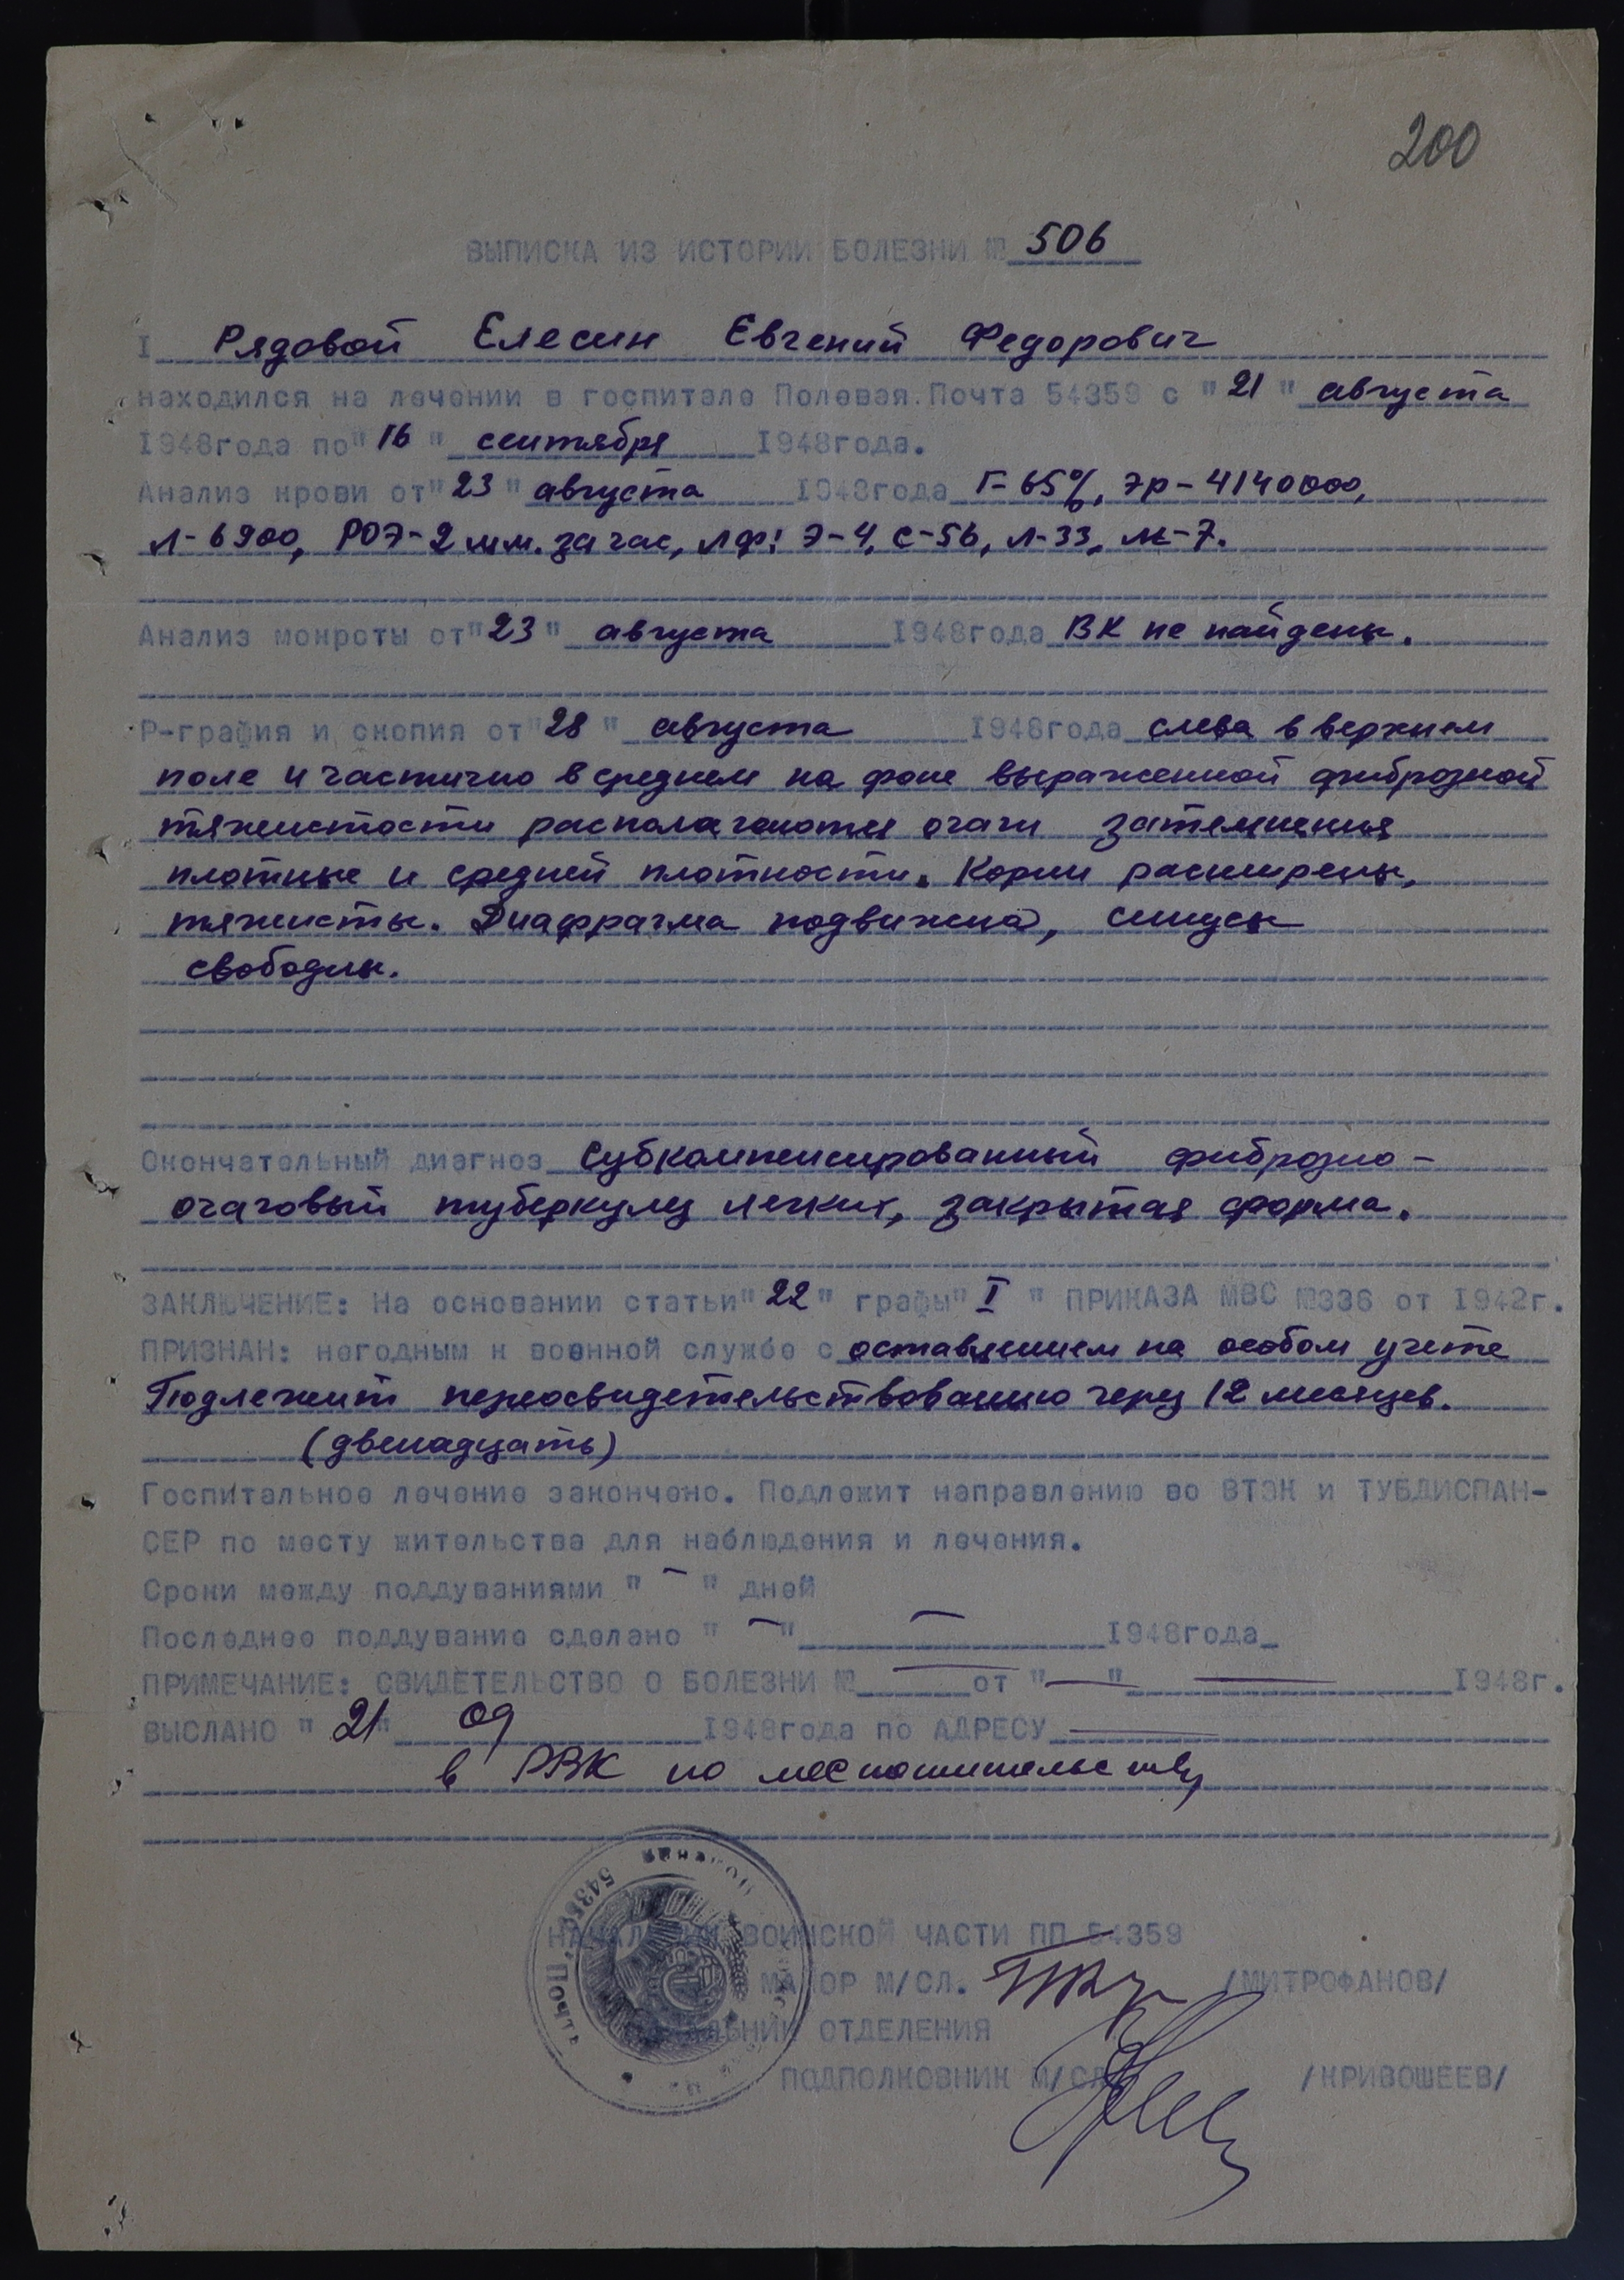 200
ВЫПИСКА ИЗ ИСТОРИИ БОЛЕЗНИ № 506
I Рядовой Елесин Евгений Федорович
находился на лечении в госпитале Полевая Почта 54359 с "21" августа
1948года по "16" сентября 1948года.
Анализ крови от "23" августа 1948года Г-65%, Эр-4140000,
Л-6900, РОЭ-2 мм. за час, лф: Э-4, С-56, Л-33, М-7.
Анализ мокроты от "23" августа 1948года ВК не найдены.
Р-графия и скопия от "28" августа 1948года слева в верхнем
поле и частично в среднем на фоне выраженной фиброзной
тяжистости располагаются очаги затемнения
плотные и средней плотности. Корни расширены,
тяжисты. Диафрагма подвижна, синусы
свободны.
Окончательный диагноз Субкомпенсированный фиброзно-
очаговый туберкулез легких, закрытая форма.
ЗАКЛЮЧЕНИЕ: На основании статьи "22" графы "I" ПРИКАЗА МВС №336 от 1942г.
ПРИЗНАН: негодным к военной службе с оставлением на особом учете
Подлежит переосвидетельствованию через 12 месяцев.
(двенадцать)
Госпитальное лечение закончено. Подлежит направлению во ВТЭК и ТУБДИСПАН-
СЕР по месту жительства для наблюдения и лечения.
Сроки между поддуваниями " - " дней
Последнее поддувание сделано " - " - 1948года
ПРИМЕЧАНИЕ: СВИДЕТЕЛЬСТВО О БОЛЕЗНИ № — от "—" — 1948г.
ВЫСЛАНО "21" 09 1948года по АДРЕСУ —
в РВК по местожительству
НАЧАЛЬНИК ВОИНСКОЙ ЧАСТИ ПП 54359
МАЙОР М/СЛ. /МИТРОФАНОВ/
НАЧАЛЬНИК ОТДЕЛЕНИЯ
ПОДПОЛКОВНИК М/СЛ /КРИВОШЕЕВ/